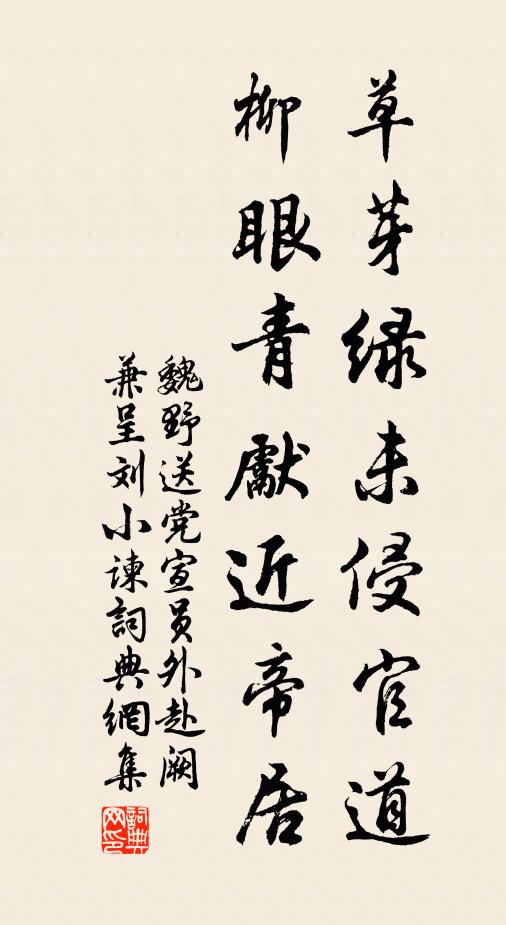 草芽绿未侵官道
柳眼青献近帝居
魏野送党宣员外赴阙
兼呈刘小谏詞典網集
詞典网印